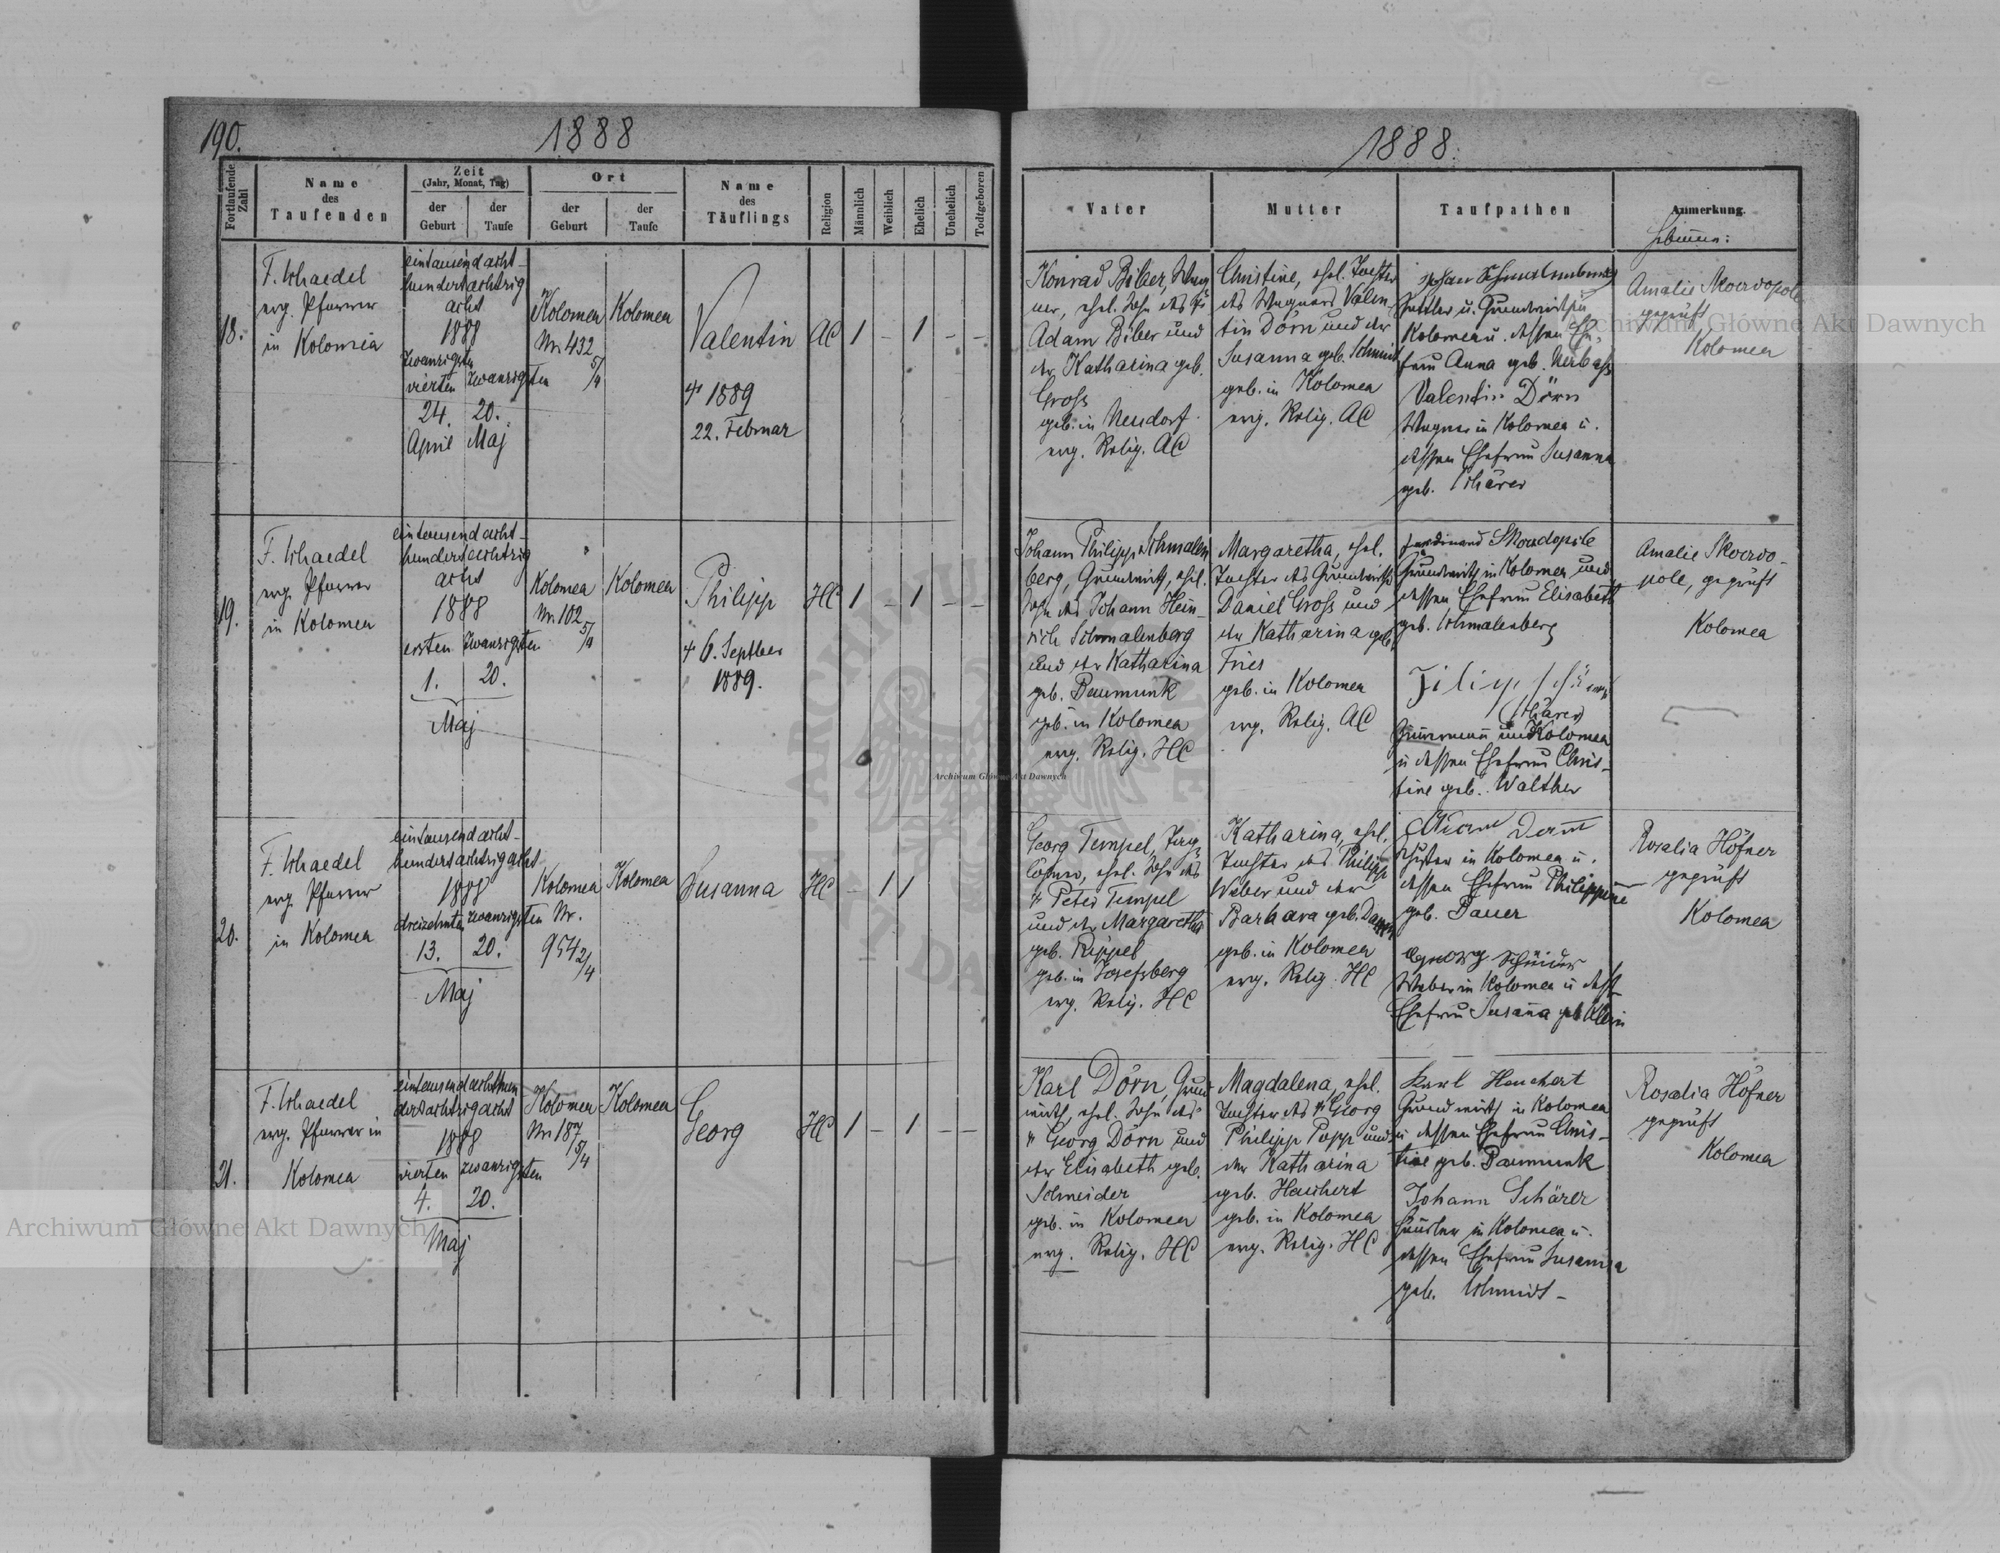 190.
1888
Fortlaufende Zahl
Name
des
Taufenden
Zeit
(Jahr, Monat, Tag)
der
Geburt
der
Taufe
Ort
der
Geburt
der
Taufe
Name
des
Täuflings
Religion
Männlich
Weiblich
Ehelich
Unehelich
Todtgeboren
18.
F. Schaedel
evg. Pfarrer
in Kolomea
eintausend acht-
hundertachtzig
acht
1888
zwanzigsten
vierten zwanzigsten
24. 20.
April Maj
Kolomea
Nr. 432
5/4
Kolomea
Valentin
† 1889
22. Februar
AC 1 - 1 - -
19.
F. Schaedel
evg. Pfarrer
in Kolomea
eintausend acht-
hundertachtzig
acht
1888
ersten zwanzigsten
1. 20.
Maj
Kolomea
Nr. 102
5/4
Kolomea
Philipp
† 6. Septber
1889.
HC 1 - 1 - -
20.
F. Schaedel
evg. Pfarrer
in Kolomea
eintausend acht-
hundertachtzigacht
1888
dreizehnten zwanzigsten
13. 20.
Maj
Kolomea
Nr.
954
2/4
Kolomea
Susanna
HC - 1 1
21.
F. Schaedel
evg. Pfarrer in
Kolomea
eintausend achthun
dertachtzigacht
1888
vierten zwanzigsten
4. 20.
Maj
Kolomea
Nr. 187
5/4
Kolomea
Georg
HC 1 - 1 - -
1888.
Vater
Mutter
Taufpathen
Anmerkung.
Hebamme:
Konrad Biber, Wag
ner, ehel. Sohn des †
Adam Biber und
der Katharina geb.
Gross
geb. in Neudorf
evg. Relig. AC
Christine, ehel. Tochter
des Wagners Valen-
tin Dörn und der
Susanna geb. Schmidt
geb. in Kolomea
evg. Relig. AC
Kolomea u. dessen Ehe-
frau Anna geb.
Valentin Dörn
Wagner in Kolomea u.
dessen Ehefrau Susanna
geb. Schärer
Amalie Skowdopole
geprüft
Kolomea
Johann Philipp Schmalen
berg, Grundwirth, ehel.
Sohn des Johann Hein
rich Schmalenberg
und der Katharina
geb. Daumunk
geb. in Kolomea
evg. Relig. HC
Margaretha, ehel.
Tochter des Grundwirths
Daniel Gross und
der Katharina geb.
Fries
geb. in Kolomea
evg. Relig. AC
Ferdinand Skowdopole
Grundwirth in Kolomea und
dessen Ehefrau Elisabeth
geb. Schmalenberg
(Schärer)
Kolomea
u dessen Ehefrau Chris-
tine geb. Walther
Amalie Skowdo-
pole, geprüft
Kolomea
Georg Tempel,
ehel. Sohn des
† Peter Tempel
und der Margaretha
geb. Rippel
geb. in Josefsberg
evg. Relig. HC
Katharina, ehel.
Tochter des Philipp
Weber und der
Barbara geb.
geb. in Kolomea
evg. Relig. HC
in Kolomea u.
dessen Ehefrau Philippine
geb. Bauer
Georg Schneider
Weber in Kolomea u dess
Ehefrau Susanna geb Klein
Rosalia Höfner
geprüft
Kolomea
Karl Dörn, Grund
wirth, ehel. Sohn des
† Georg Dörn und
der Elisabeth geb.
Schneider
geb. in Kolomea
evg. Relig. HC
Magdalena, ehel.
Tochter des † Georg
Philipp Popp und
der Katharina
geb. Heuchert
geb. in Kolomea
evg. Relig. HC
Karl Heuchert
Grundwirth in Kolomea
u dessen Ehefrau Chris-
tine geb. Daumunk
Johann Schärer
Häusler in Kolomea u.
dessen Ehefrau Susanna
geb. Schmidt -
Rosalia Höfner
geprüft
Kolomea
Archiwum Główne Akt Dawnych
Archiwum Główne Akt Dawnych
Archiwum Główne Akt Dawnych